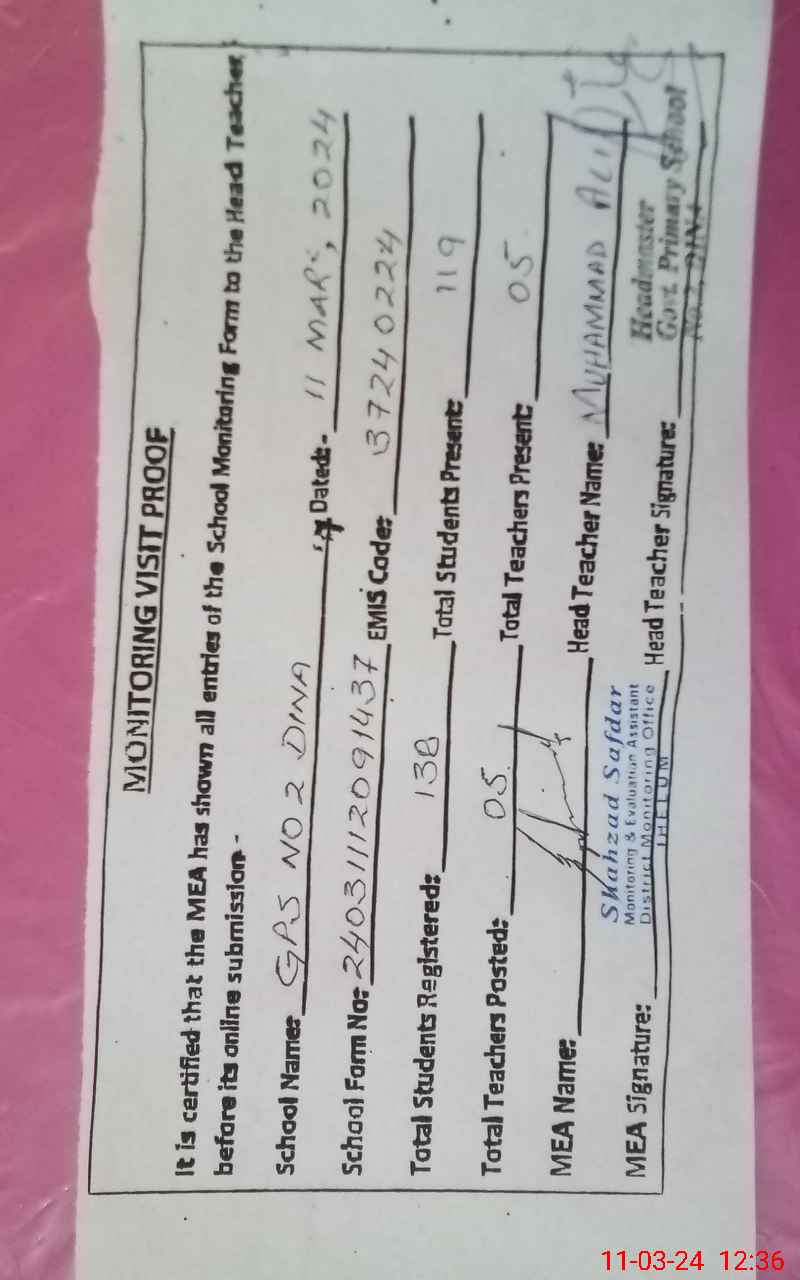 MONITORING VISIT PROOF
It is certified that the MEA has shown all entries of the School Monitoring Form to the Head Teacher
before its online submission -
School Name: GPS NO 2 DINA Dated:- 11 MARCH, 2024
School Form No: 2403111209 1437 EMIS Code: 37240224
Total Students Registered: 138 Total Students Present: 119
Total Teachers Posted: 05 Total Teachers Present: 05
MEA Name: Head Teacher Name: MUHAMMAD ALI
Shahzad Safdar
Monitoring & Evaluation Assistant
District Monitoring Office
JHELUM
Headmaster
Govt. Primary School
No. 2, DINA
MEA Signature: Head Teacher Signature:
11-03-24 12:36